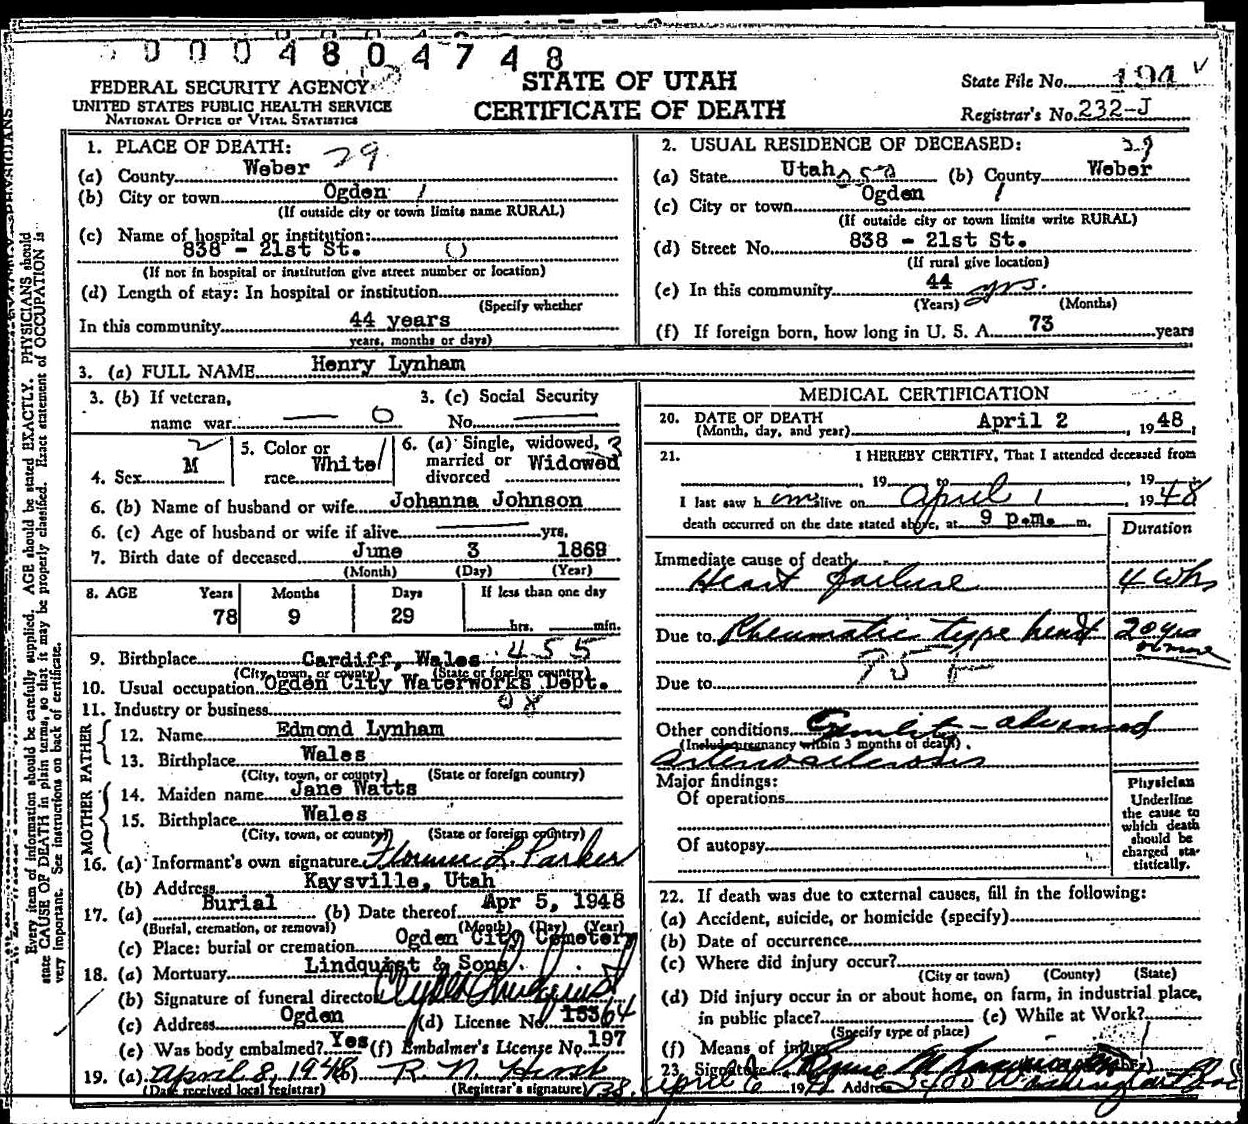 0004804748
FEDERAL SECURITY AGENCY
UNITED STATES PUBLIC HEALTH SERVICE
NATIONAL OFFICE OF VITAL STATISTICS
STATE OF UTAH
CERTIFICATE OF DEATH
State File No. 194
Registrar's No. 232-J
Every item of information should be carefully supplied. AGE should be stated EXACTLY. PHYSICIANS should
state CAUSE OF DEATH in plain terms, so that it may be properly classified. Exact statement of OCCUPATION is
very important. See instructions on back of certificate.
1. PLACE OF DEATH: 29
(a) County Weber
(b) City or town Ogden 1
(If outside city or town limits name RURAL)
(c) Name of hospital or institution:
838 - 21st St. 0
(If not in hospital or institution give street number or location)
(d) Length of stay: In hospital or institution
(Specify whether
In this community 44 years
years, months or days)
2. USUAL RESIDENCE OF DECEASED: 29
(a) State Utah (b) County Weber
(c) City or town Ogden 1
(If outside city or town limits write RURAL)
(d) Street No. 838 - 21st St.
(If rural give location)
(e) In this community 44 yrs.
(Years) (Months)
(f) If foreign born, how long in U. S. A. 73 years
3. (a) FULL NAME Henry Lynham
3. (b) If veteran,
name war 0
3. (c) Social Security
No.
4. Sex M 2
5. Color or
race White 1
6. (a) Single, widowed, 3
married or Widowed
divorced
6. (b) Name of husband or wife Johanna Johnson
6. (c) Age of husband or wife if alive yrs.
7. Birth date of deceased June 3 1869
(Month) (Day) (Year)
8. AGE Years Months Days If less than one day
78 9 29 hrs. min.
9. Birthplace Cardiff, Wales 455
(City, town, or county) (State or foreign country)
10. Usual occupation Ogden City Waterworks Dept.
11. Industry or business 08
FATHER
12. Name Edmond Lynham
13. Birthplace Wales
(City, town, or county) (State or foreign country)
MOTHER
14. Maiden name Jane Watts
15. Birthplace Wales
(City, town, or county) (State or foreign country)
16. (a) Informant's own signature Florence L. Parker
(b) Address Kaysville, Utah
17. (a) Burial (b) Date thereof Apr 5, 1948
(Burial, cremation, or removal) (Month) (Day) (Year)
(c) Place: burial or cremation Ogden City Cemetery
18. (a) Mortuary Lindquist & Sons
(b) Signature of funeral director Clyde Lindquist
(c) Address Ogden (d) License No.
(e) Was body embalmed? Yes (f) Embalmer's License No. 197
19. (a) April 8, 1948 (b) R. N. Hirst
(Date received local registrar) (Registrar's signature)
MEDICAL CERTIFICATION
20. DATE OF DEATH
(Month, day, and year) April 2, 1948
21. I HEREBY CERTIFY, That I attended deceased from
, 19 to , 19
I last saw him alive on April 1, 1948
death occurred on the date stated above, at 9 p.m. m.
Duration
Immediate cause of death
Heart failure 4 wks
Due to Rheumatic type heart 20 yrs
or more
Due to
Other conditions Senility - advanced
(Include pregnancy within 3 months of death)
arteriosclerosis
Major findings:
Of operations
Of autopsy
Physician
Underline
the cause to
which death
should be
charged sta-
tistically.
22. If death was due to external causes, fill in the following:
(a) Accident, suicide, or homicide (specify)
(b) Date of occurrence
(c) Where did injury occur?
(City or town) (County) (State)
(d) Did injury occur in or about home, on farm, in industrial place,
in public place? (e) While at Work?
(Specify type of place)
(f) Means of injury
23. Signature
April 6 19 Address 3400 Washington Blvd